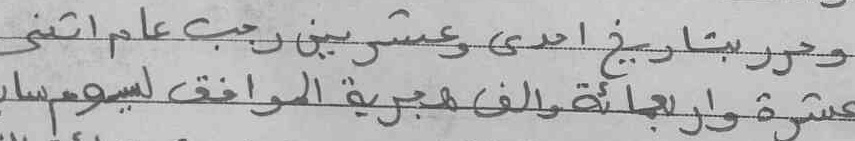 وحرر بتاريخ احدى وعشرين رجب عام اثنى
عشرة واربعمائة والف هجرية الموافق ليوم